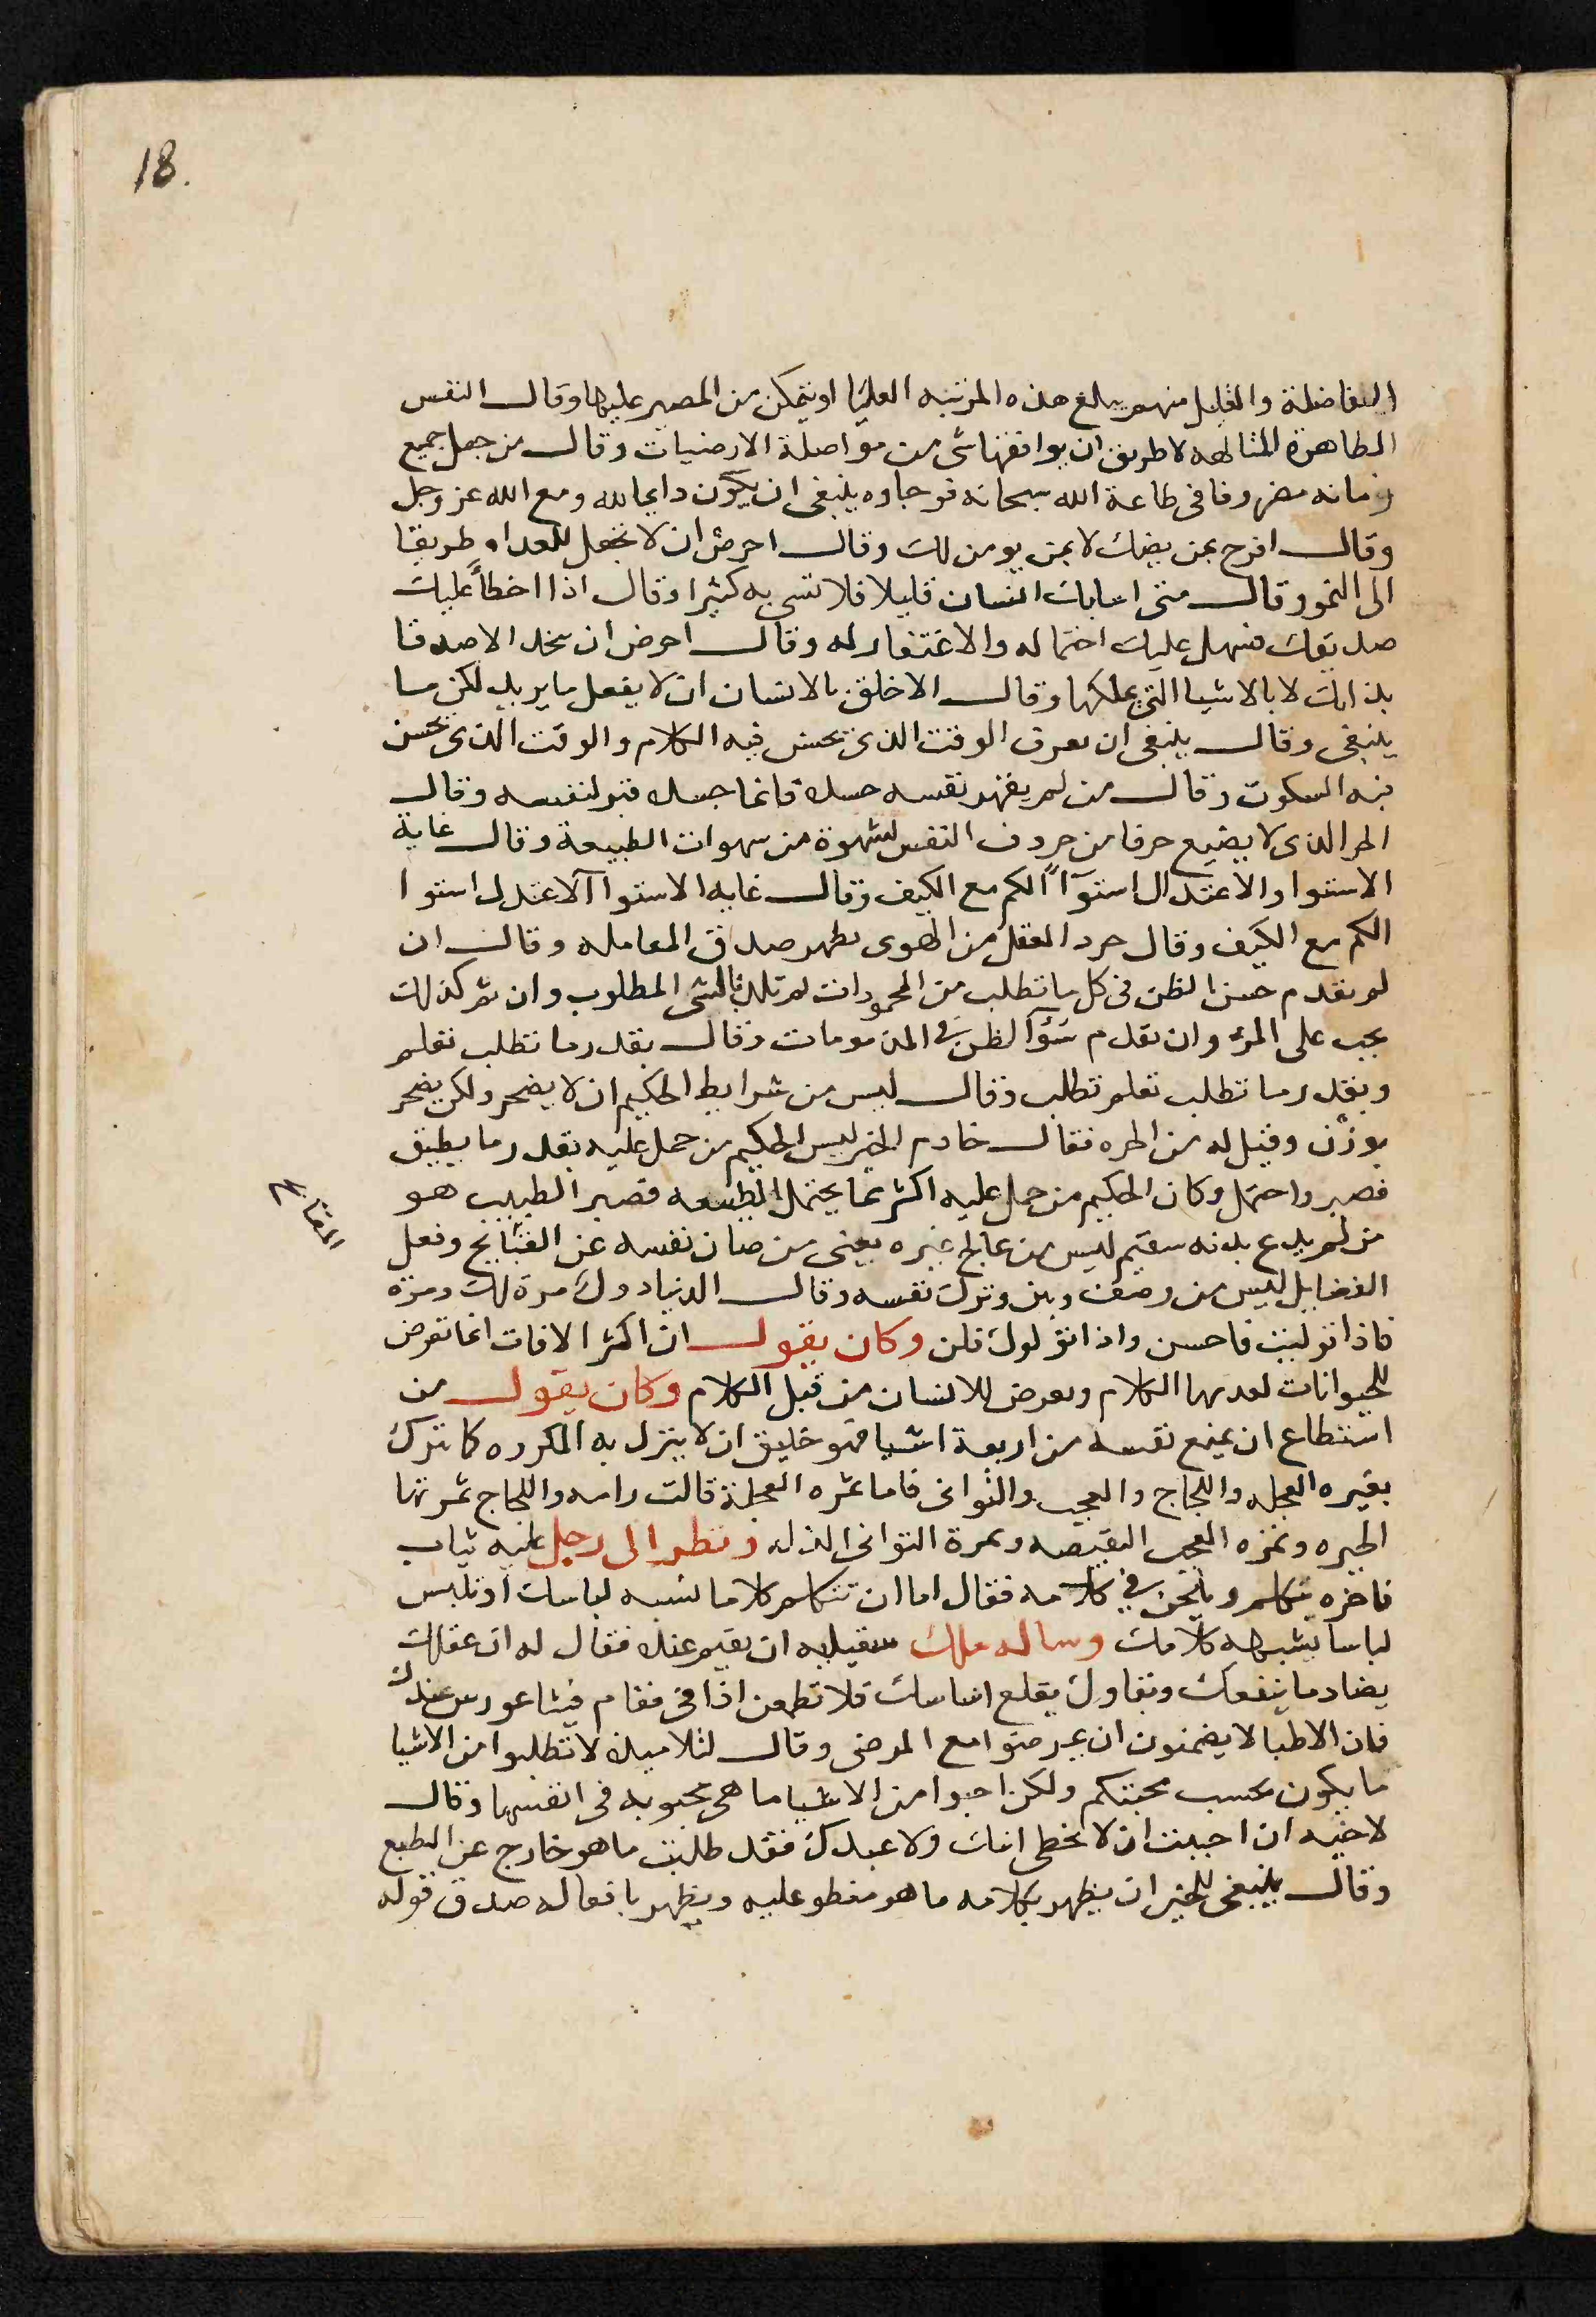 18.
الفاضلة والقليل منهم يبلغ هذه المرتبه العليا او يتمكن من المصير عليها وقال النفس
الطاهرة المتالهه لا طريق ان يوافقها شى من مواصلة الارضيات وقال من جعل جميع
زمانه مصروفا فى طاعة الله سبحانه فرجاوه ينبغى ان يكون دايما لله ومع الله عز وجل
وقال افرح بمن يضك لا بمن يومن لك وقال احرض ان لا تجعل للعداوه طريقا
الى النمو وقال متى اسابك انسان قليلا فلا تسى به كثيرا وقال اذا اخطأ عليك
صديقك فسهل عليك احتماله والاغتفار له وقال احرض ان تتخذ الاصدقا
بذاتك لا بالاشيا التى تملكها وقال الاخلق بالانسان ان لا يفعل ما يريد لكن ما
ينبغى وقال ينبغى ان تعرف الوقت الذى يحسن فيه الكلام والوقت الذى يحسن
فيه السكوت وقال من لم يقهر نفسه جسده فانما جسده قبر لنفسه وقال
الحر الذى لا يضيع حرفا من حروف النفس لشهوة من شهوات الطبيعة وقال غاية
الاستوا والاعتدال استوآاً الكم مع الكيف وقال غايه الاستوا الاعتدل استوا
الكم مع الكيف وقال جرد العقل من الهوى يظهر صدق المعامله وقال ان
لم تقدم حسن الظن فى كل ما تطلب من المحمودات لم تلتذ بالشى المطلوب وان تم كذلك
يجب على المرء وان تقدم سَوءَ الظن فى المذمومات وقال بقدر ما تطلب تعلم
وبقدر ما تطلب تعلم تطلب وقال ليس من شرايط الحكيم ان لا يضجر ولكن يضجر
بوزن وقيل له من الحره فقال خادم الخير ليس الحكيم من حمل عليه بقدر ما يطيق
فصبر واحتمل وكان الحكيم من حمل عليه اكثر مما يحتمل الطبيعه فصبر الطبيب هو
من لم يدع بدنه سقيم ليس من عالج غيره يعنى من صان نفسه عن القبايح وفعل
الفضايل ليس من وصف وبن وترك نفسه وقال الدنيا دول مرة لك ومرة
فاذا توليت فاحسن واذا تولوك فلن وكان يقول ان اكثر الافات انما تعرض
للحيوانات لعدمها الكلام وتعرض للانسان من قبل الكلام وكان يقول من
استطاع ان يمنع نفسه من اربعة اشيا فهو خليق ان لا ينزل به المكروه كما ينزل
بغيره العجله واللجاج والعجب والتوانى فاما ثمره العجلة فالندامه واللجاج ثمرتها
الحيره وثمره العجب البغيضه وثمرة التوانى الذله ونظر الى رجل عليه ثياب
فاخره يتكلم ويلحن فى كلامه فقال اما ان تتكلم كلاما يشبه لباسك او تلبس
لباسا يشبهه كلامك وساله ملك ان يقيم عنده فقال له ان عقلك
يضاد ما ينفعك وتقاولك يقلع اساسك فلا تطمعن اذا فى مقام فيثاغورس عندك
فان الاطبا لا يضمنون ان يمرضوا مع المرضى وقال لتلاميذه لا تطلبوا من الاشيا
ما يكون بحسب محبتكم ولكن احبوا من الاشيا ما هى محبوبه فى انفسها وقال
لاخيه ان احببت ان لا يخطى ابنك ولا عبدك فقد طلبت ما هو خارج عن الطبع
وقال ينبغى للخير ان يظهر بكلامه ما هو منطو عليه ويظهر بافعاله صدق قوله